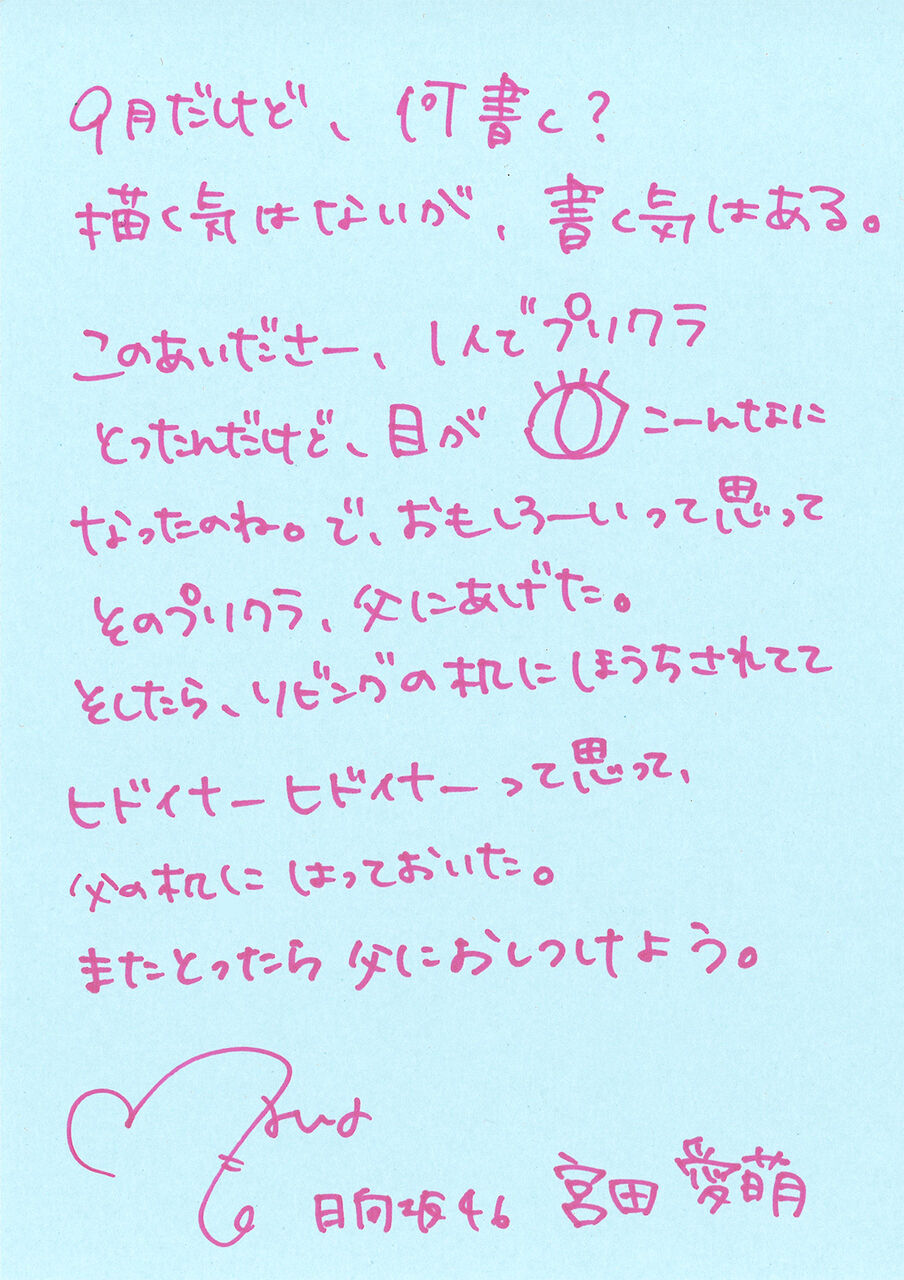 9月だけど、何書く?
描く気はないが、書く気はある。
このあいださー、1人でプリクラ
とったんだけど、目が こーんなに
なったのね。で、おもしろーいって思って
そのプリクラ、父にあげた。
そしたら、リビングの机にほうちされてて
ヒドイナー ヒドイナーって思って、
父の机に はっておいた。
またとったら 父におしつけよう。
日向坂46 宮田 愛萌